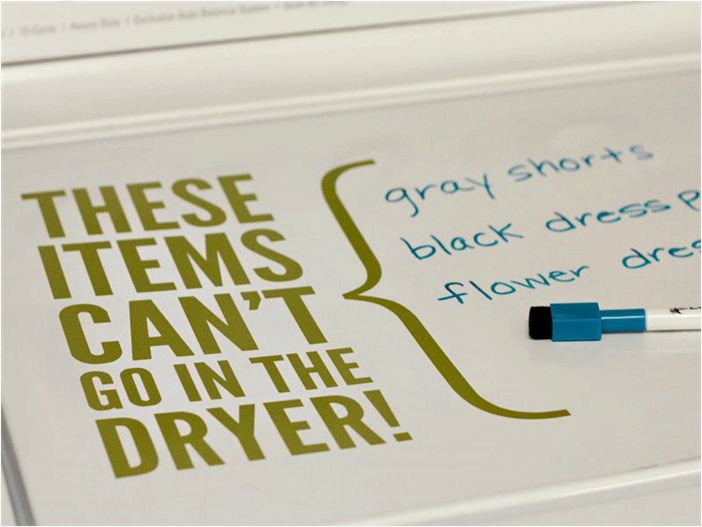 THESE
ITEMS
CAN'T
GO IN THE
DRYER!
gray shorts
black dress
flower